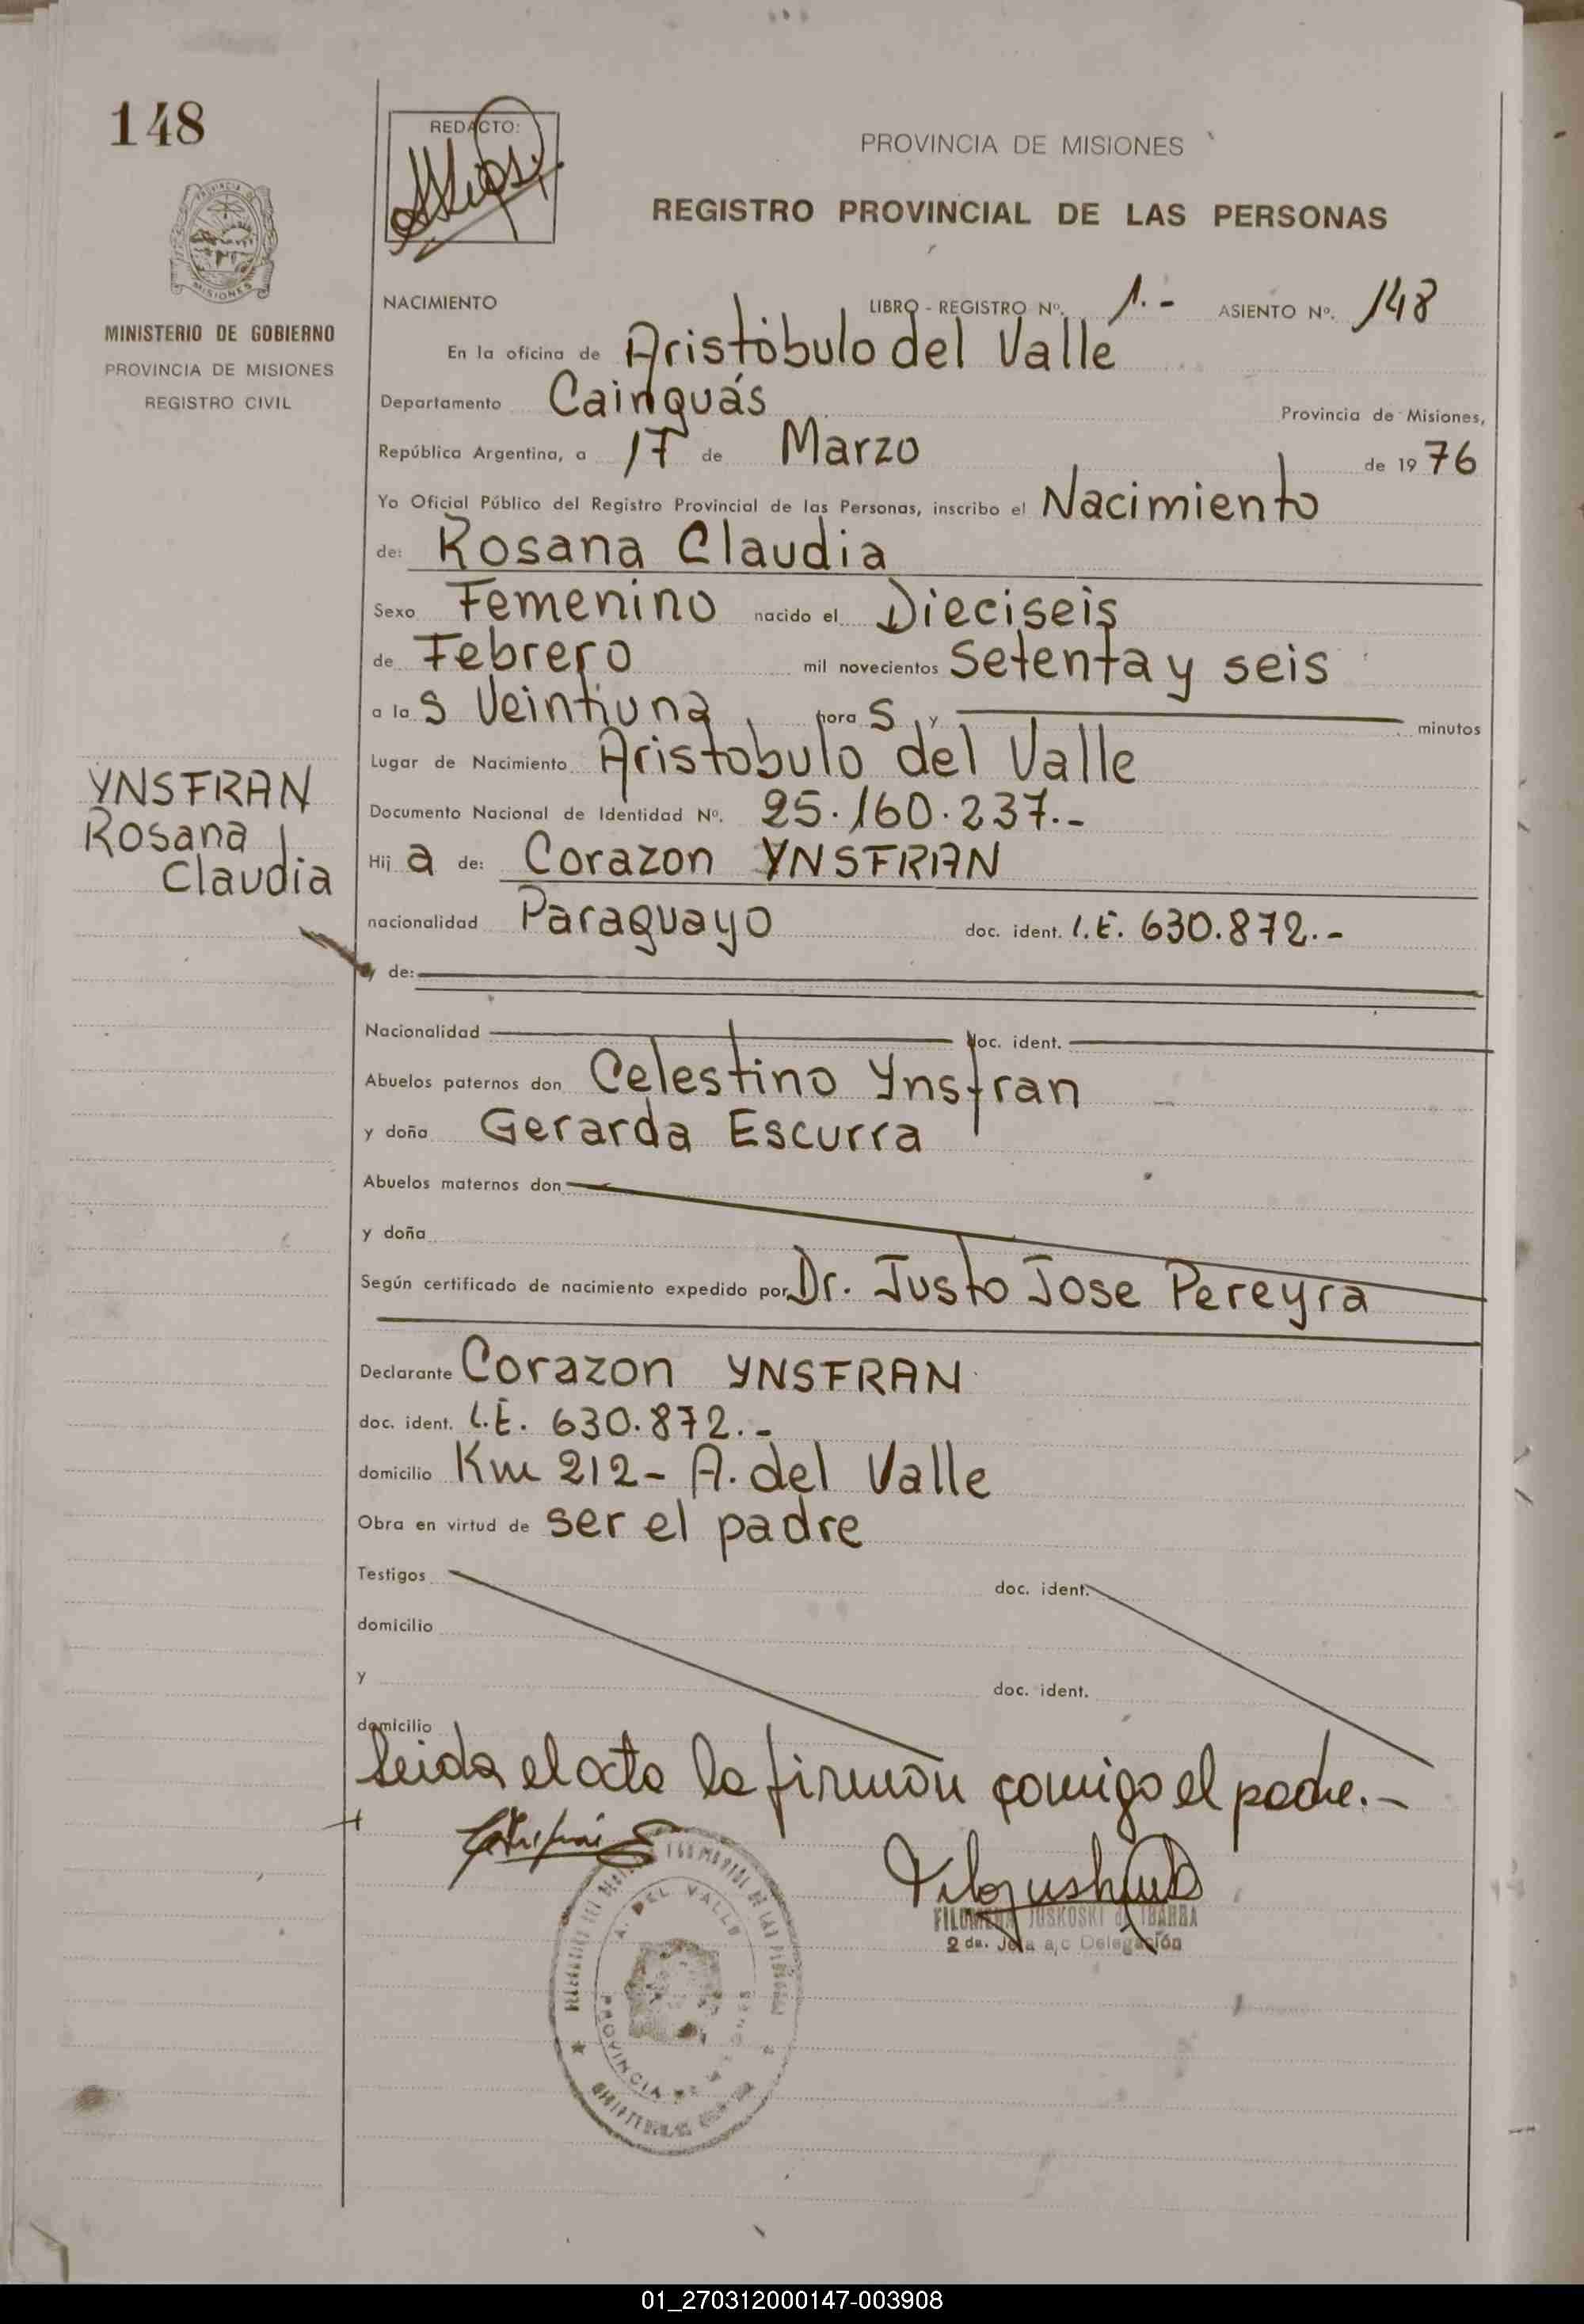 148
REDACTO:
PROVINCIA DE MISIONES
REGISTRO PROVINCIAL DE LAS PERSONAS
MISIONES
MINISTERIO DE GOBIERNO
PROVINCIA DE MISIONES
REGISTRO CIVIL
NACIMIENTO LIBRO - REGISTRO Nº. 1.- ASIENTO Nº. 148
En la oficina de Aristóbulo del Valle
Departamento Cainguás Provincia de Misiones,
República Argentina, a 17 de Marzo de 1976
Yo Oficial Público del Registro Provincial de las Personas, inscribo el Nacimiento
de: Rosana Claudia
Sexo Femenino nacido el Dieciseis
de Febrero mil novecientos Setenta y seis
a las Veintiuna horas y minutos
Lugar de Nacimiento Aristobulo del Valle
YNSFRAN
Rosana
Claudia
Documento Nacional de Identidad Nº. 25.160.237.-
Hija de: Corazon YNSFRAN
nacionalidad Paraguayo doc. ident. L.E. 630.872.-
y de:
Nacionalidad doc. ident.
Abuelos paternos don Celestino Ynsfran
y doña Gerarda Escurra
Abuelos maternos don
y doña
Según certificado de nacimiento expedido por Dr. Justo Jose Pereyra
Declarante Corazon YNSFRAN
doc. ident. L.E. 630.872.-
domicilio Km 212- A. del Valle
Obra en virtud de ser el padre
Testigos doc. ident.
domicilio
y doc. ident.
domicilio
Leida el acta la firman comigo el padre.-
A. DEL VALLE
PROVINCIA
FILOMENA JUSKOSKI de IBARRA
2 da. Jefa a/c Delegación
01_270312000147-003908